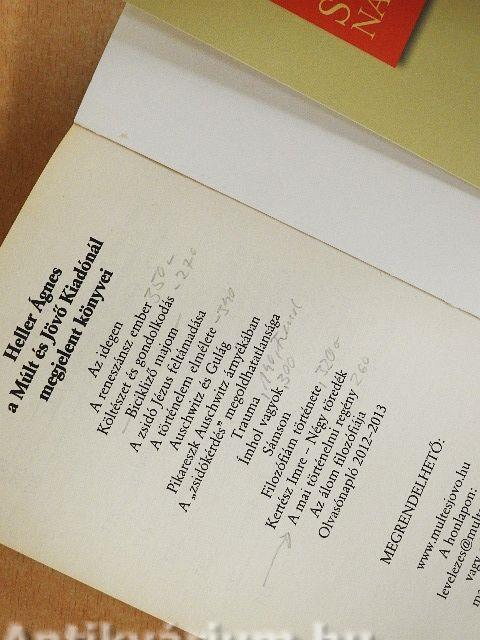 Heller Ágnes
a Múlt és Jövő Kiadónál
megjelent könyvei
Az idegen
A reneszánsz ember 350-
Költészet és gondolkodás - 270
Bicikliző majom
A zsidó Jézus feltámadása
A történelem elmélete - 340
Auschwitz és Gulág
Pikareszk Auschwitz árnyékában
A „zsidókérdés" megoldhatatlansága
Trauma
Ímhol vagyok 300
Sámson
Filozófiám története
Kertész Imre – Négy töredék
A mai történelmi regény 260
Az álom filozófiája
Olvasónapló 2012–2013
MEGRENDELHETŐ:
www.multesjovo.hu
A honlapon:
levelezes@multe
vagy
Antikvárium.hu